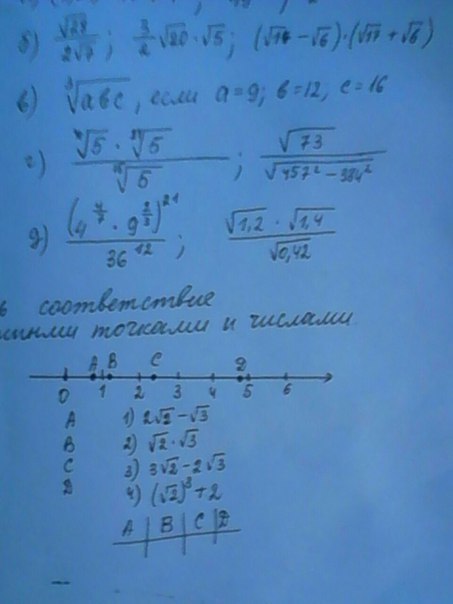 б) √28 / 2√7 ; 3/2 √20 · √5 ; (√17 − √6) · (√17 + √6)
в) ∛abc , если a=9; b=12; c=16
г) √5 · √5 / √5 ; √73 / √457² − 384²
д) (4^4/7 · 9^2/3)^21 / 36^12 ; √1,2 · √1,4 / √0,42
ь соответствие
точками и числами
A B C D
0 1 2 3 4 5 6
A 1) 2√2 − √3
B 2) √2 · √3
C 3) 3√2 − 2√3
D 4) (√2)³ + 2
A B C D